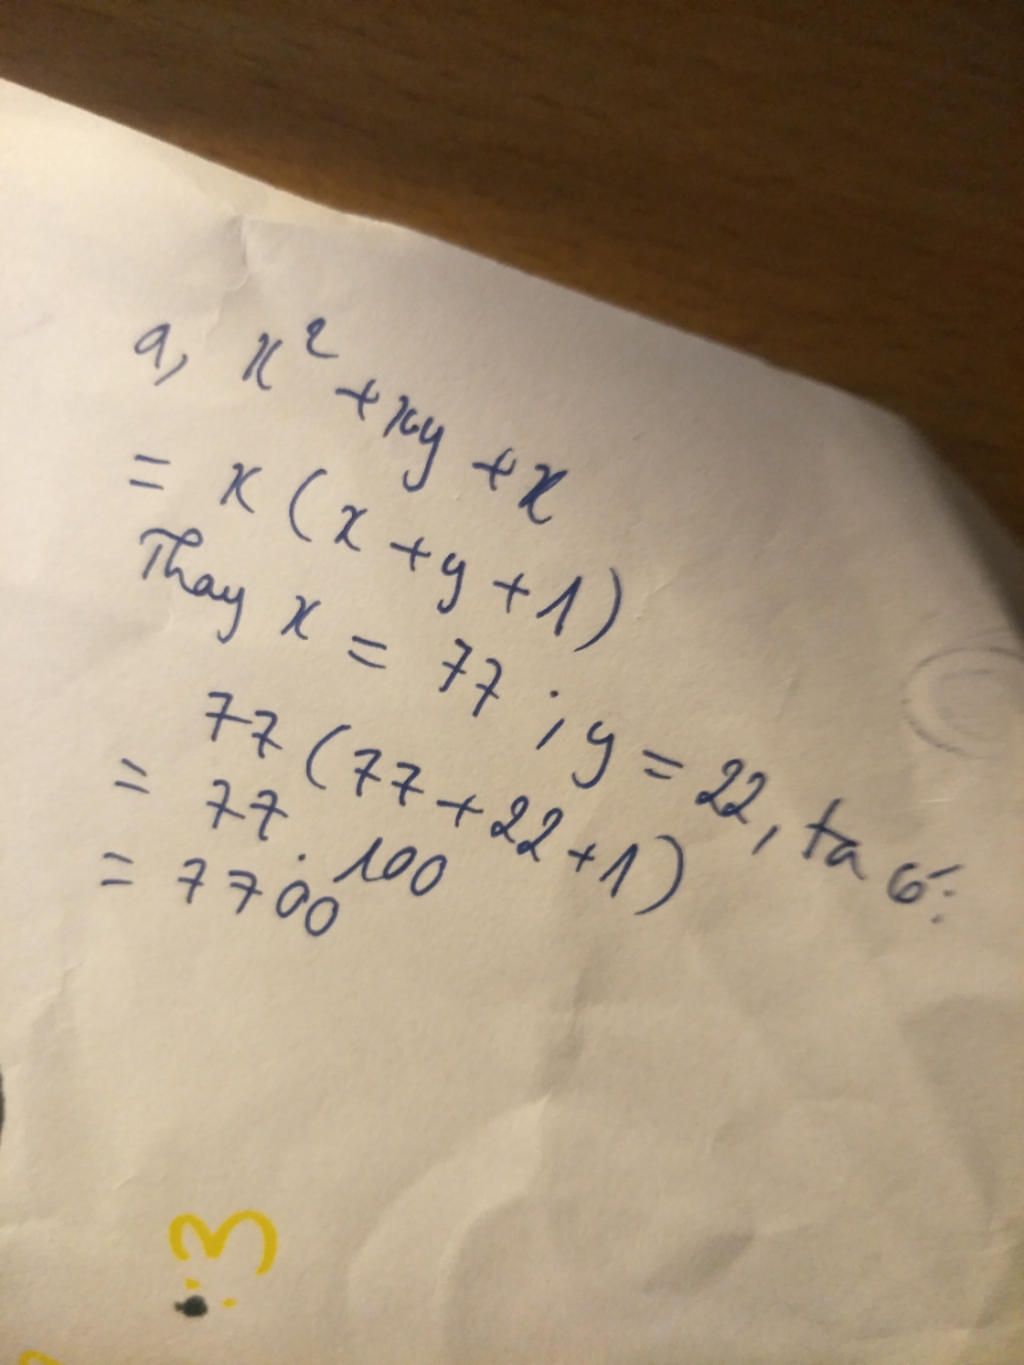 a, x² + xy + x
= x (x + y + 1)
Thay x = 77 ; y = 22, ta có:
77 (77 + 22 + 1)
= 77 . 100
= 7700
:3